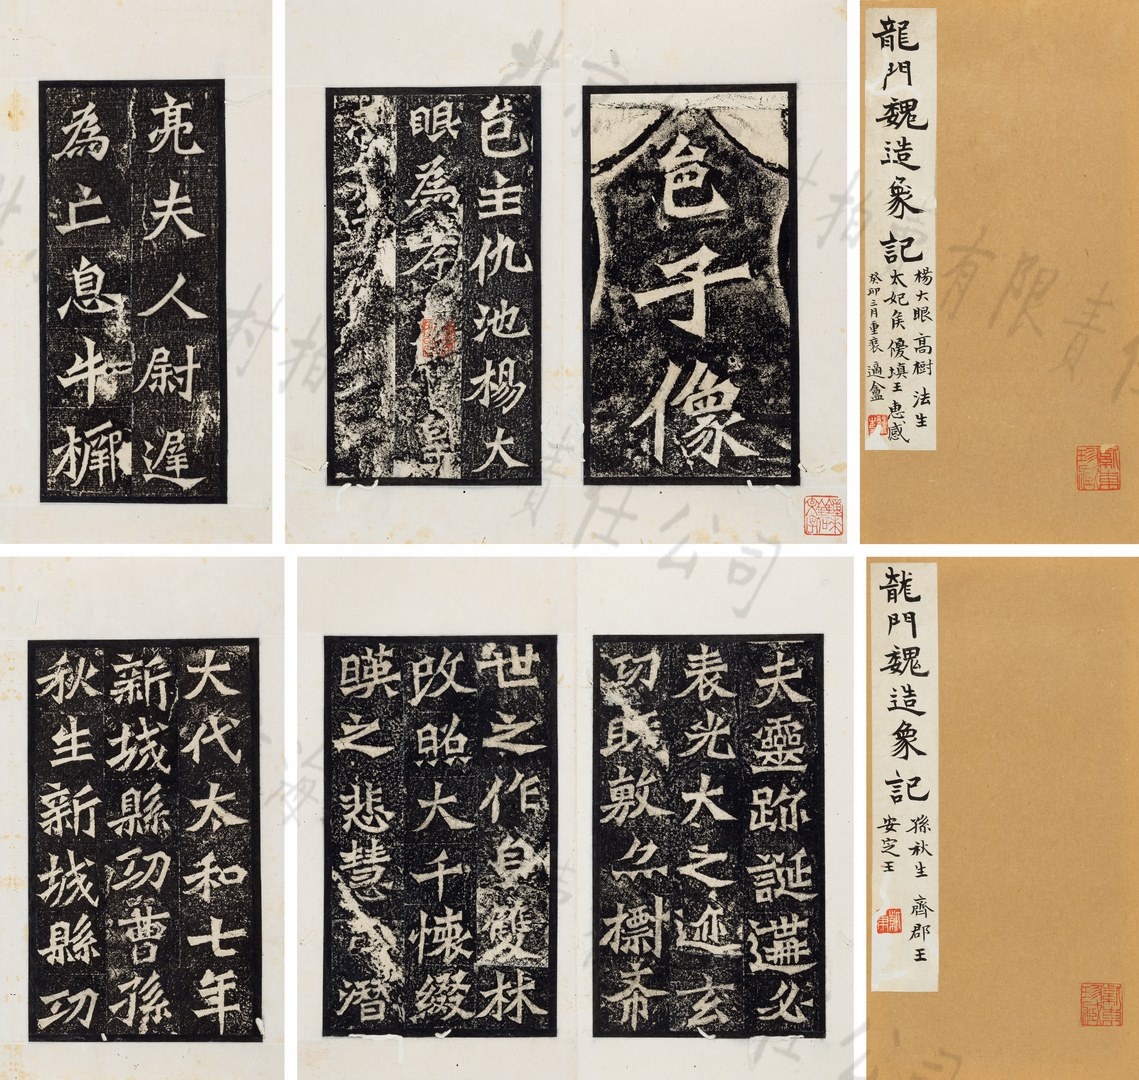 龍門魏造象記
楊大眼 高樹 法生
太妃侯 優填王 惠感
癸卯三月重裝 適盦
邑子像
邑主仇池楊大
眼為孝
皇
亮夫人尉遲
為亡息牛橛
龍門魏造象記
孫秋生 齊郡王
安定王
夫靈跡誕遘必
表光大之迹玄
功旣敷亦標希
世之作自雙林
改照大千懷綴
暎之悲慧
潛
大代太和七年
新城縣功曹孫
秋生新城縣功